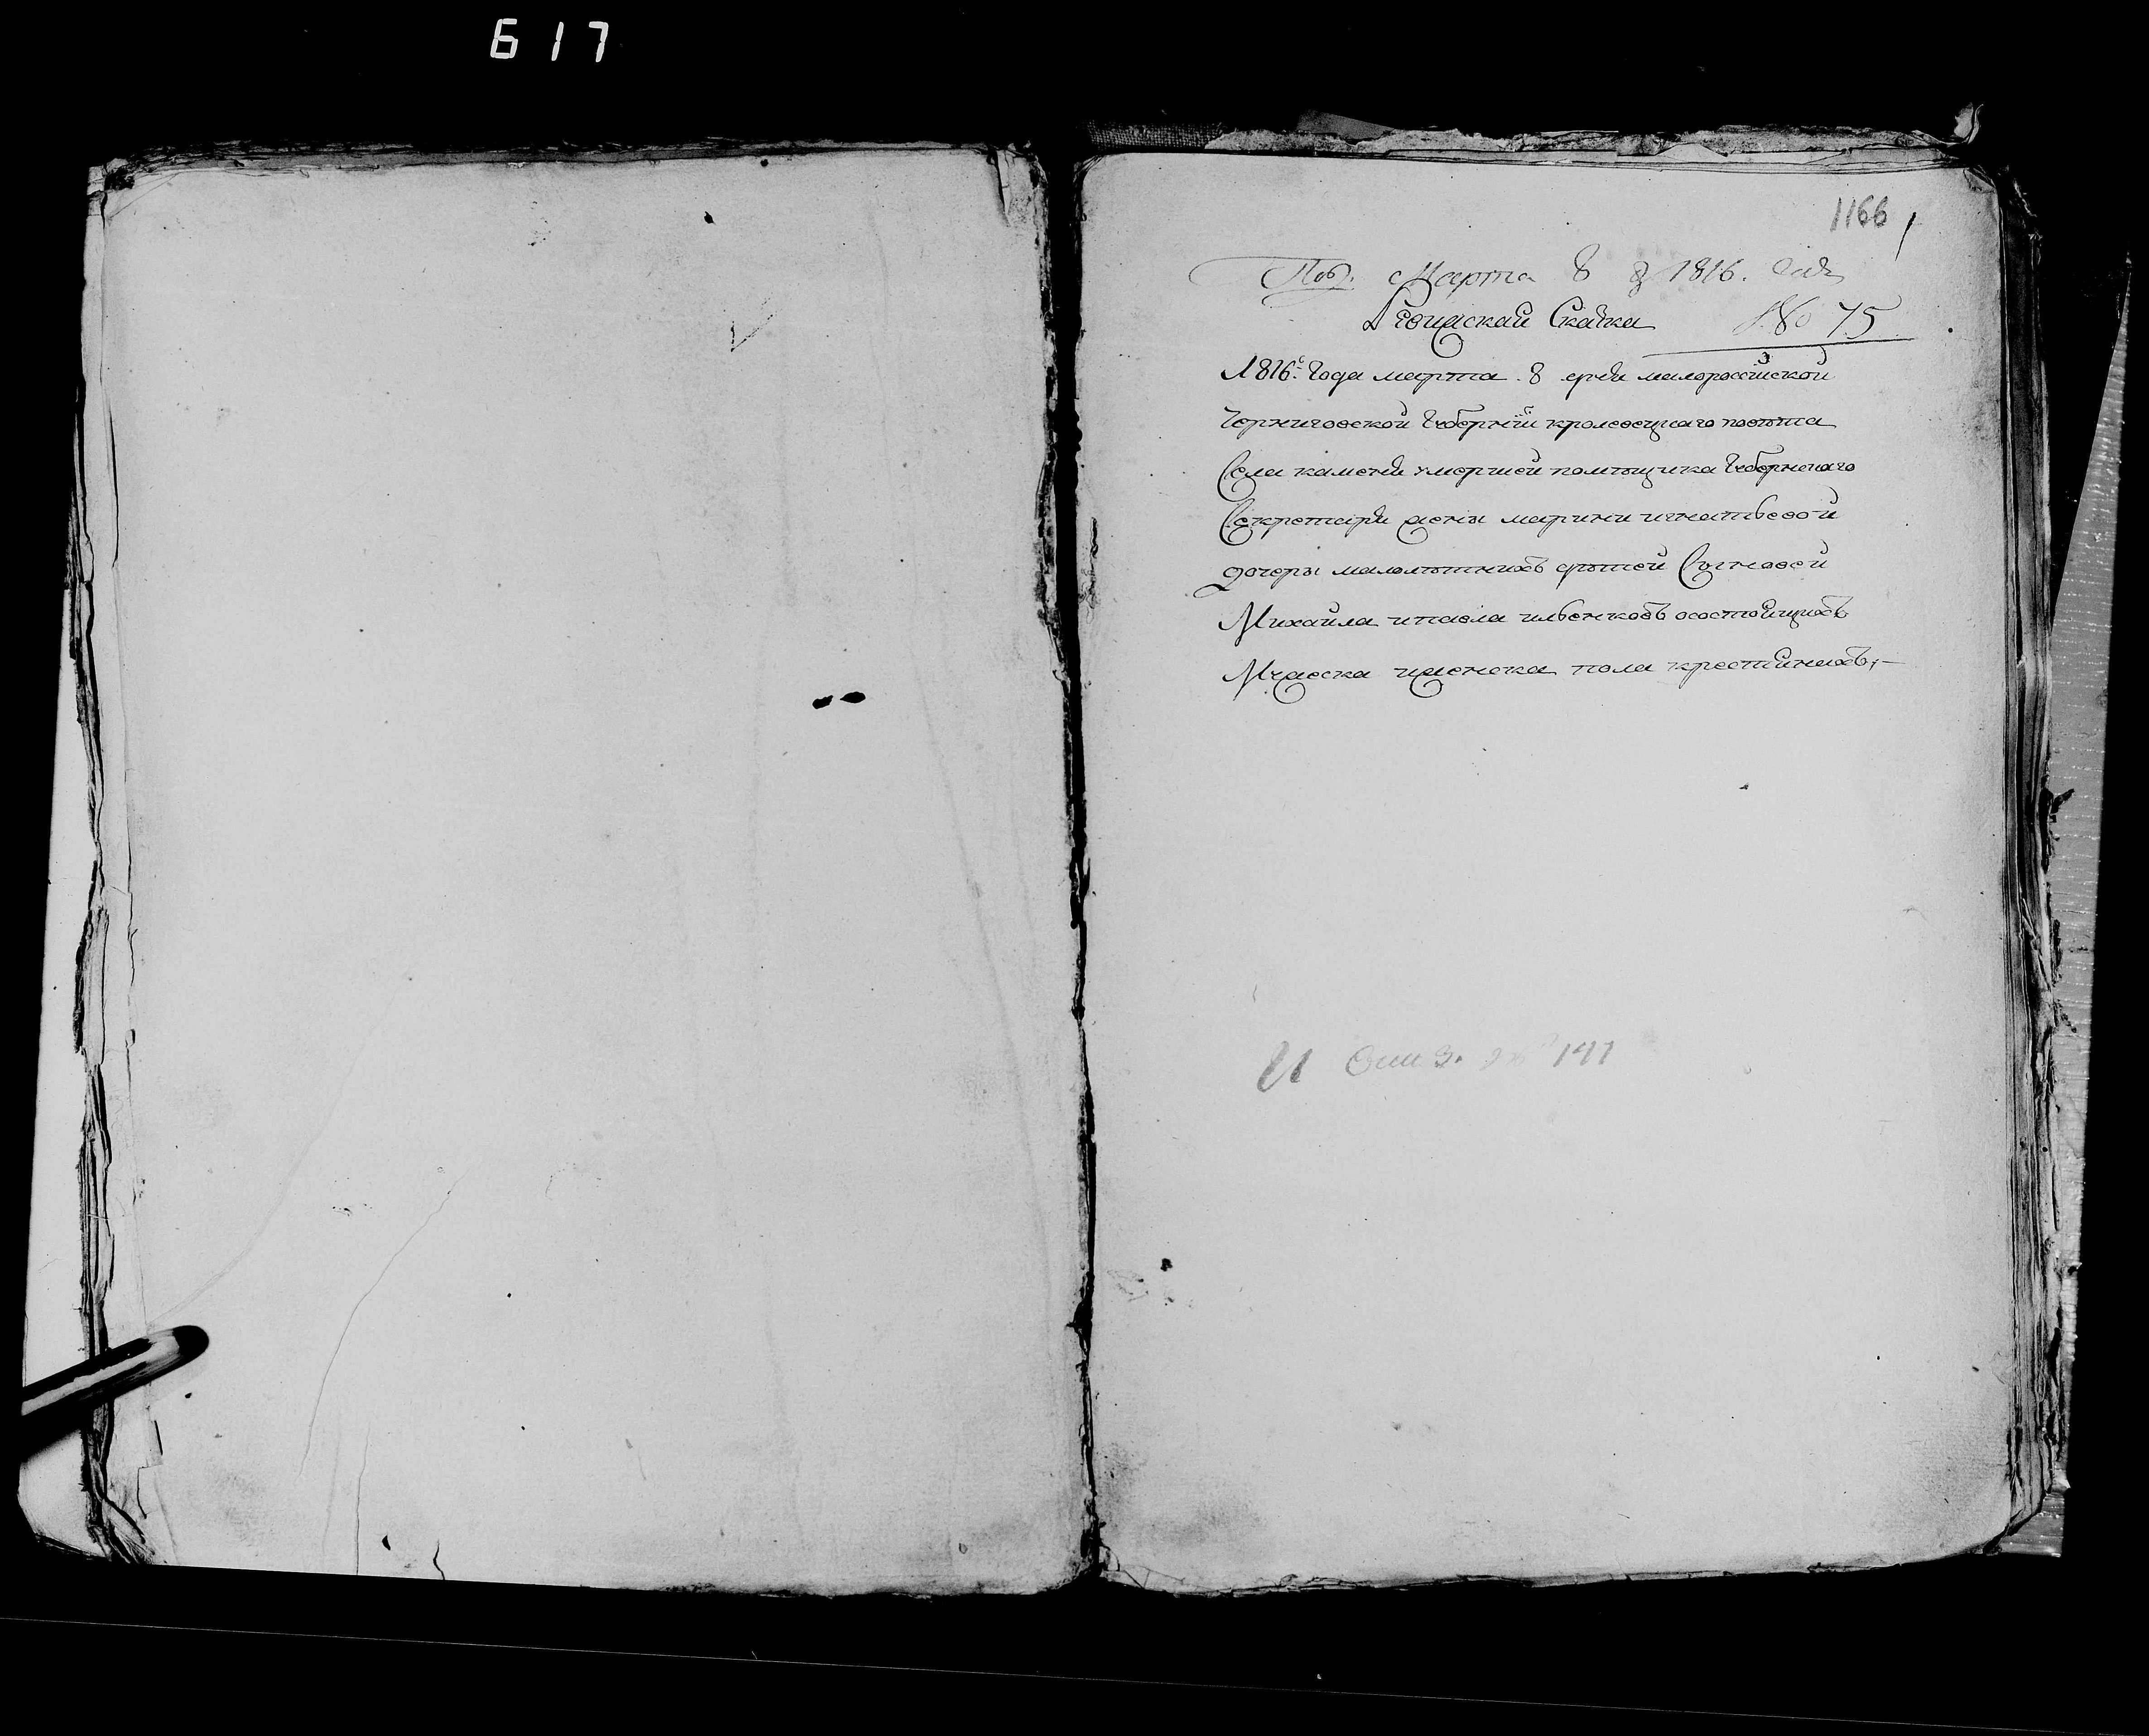 617
1166
Под. Марта 8 д 1816. года
Ревижская Сказка № 75
1816.го года марта 8 дня малороссийской
Черниговской Губернии кролевецкаго повѣта
Села каменя умершей помѣщика Губернскаго
Секретаря жены марини игнатьевой
дочеры малолѣтнихъ дѣтей Сыновей
Михайла и павла ильенковъ осостоящихъ
Мужеска иженска пола крестянахъ,-
141